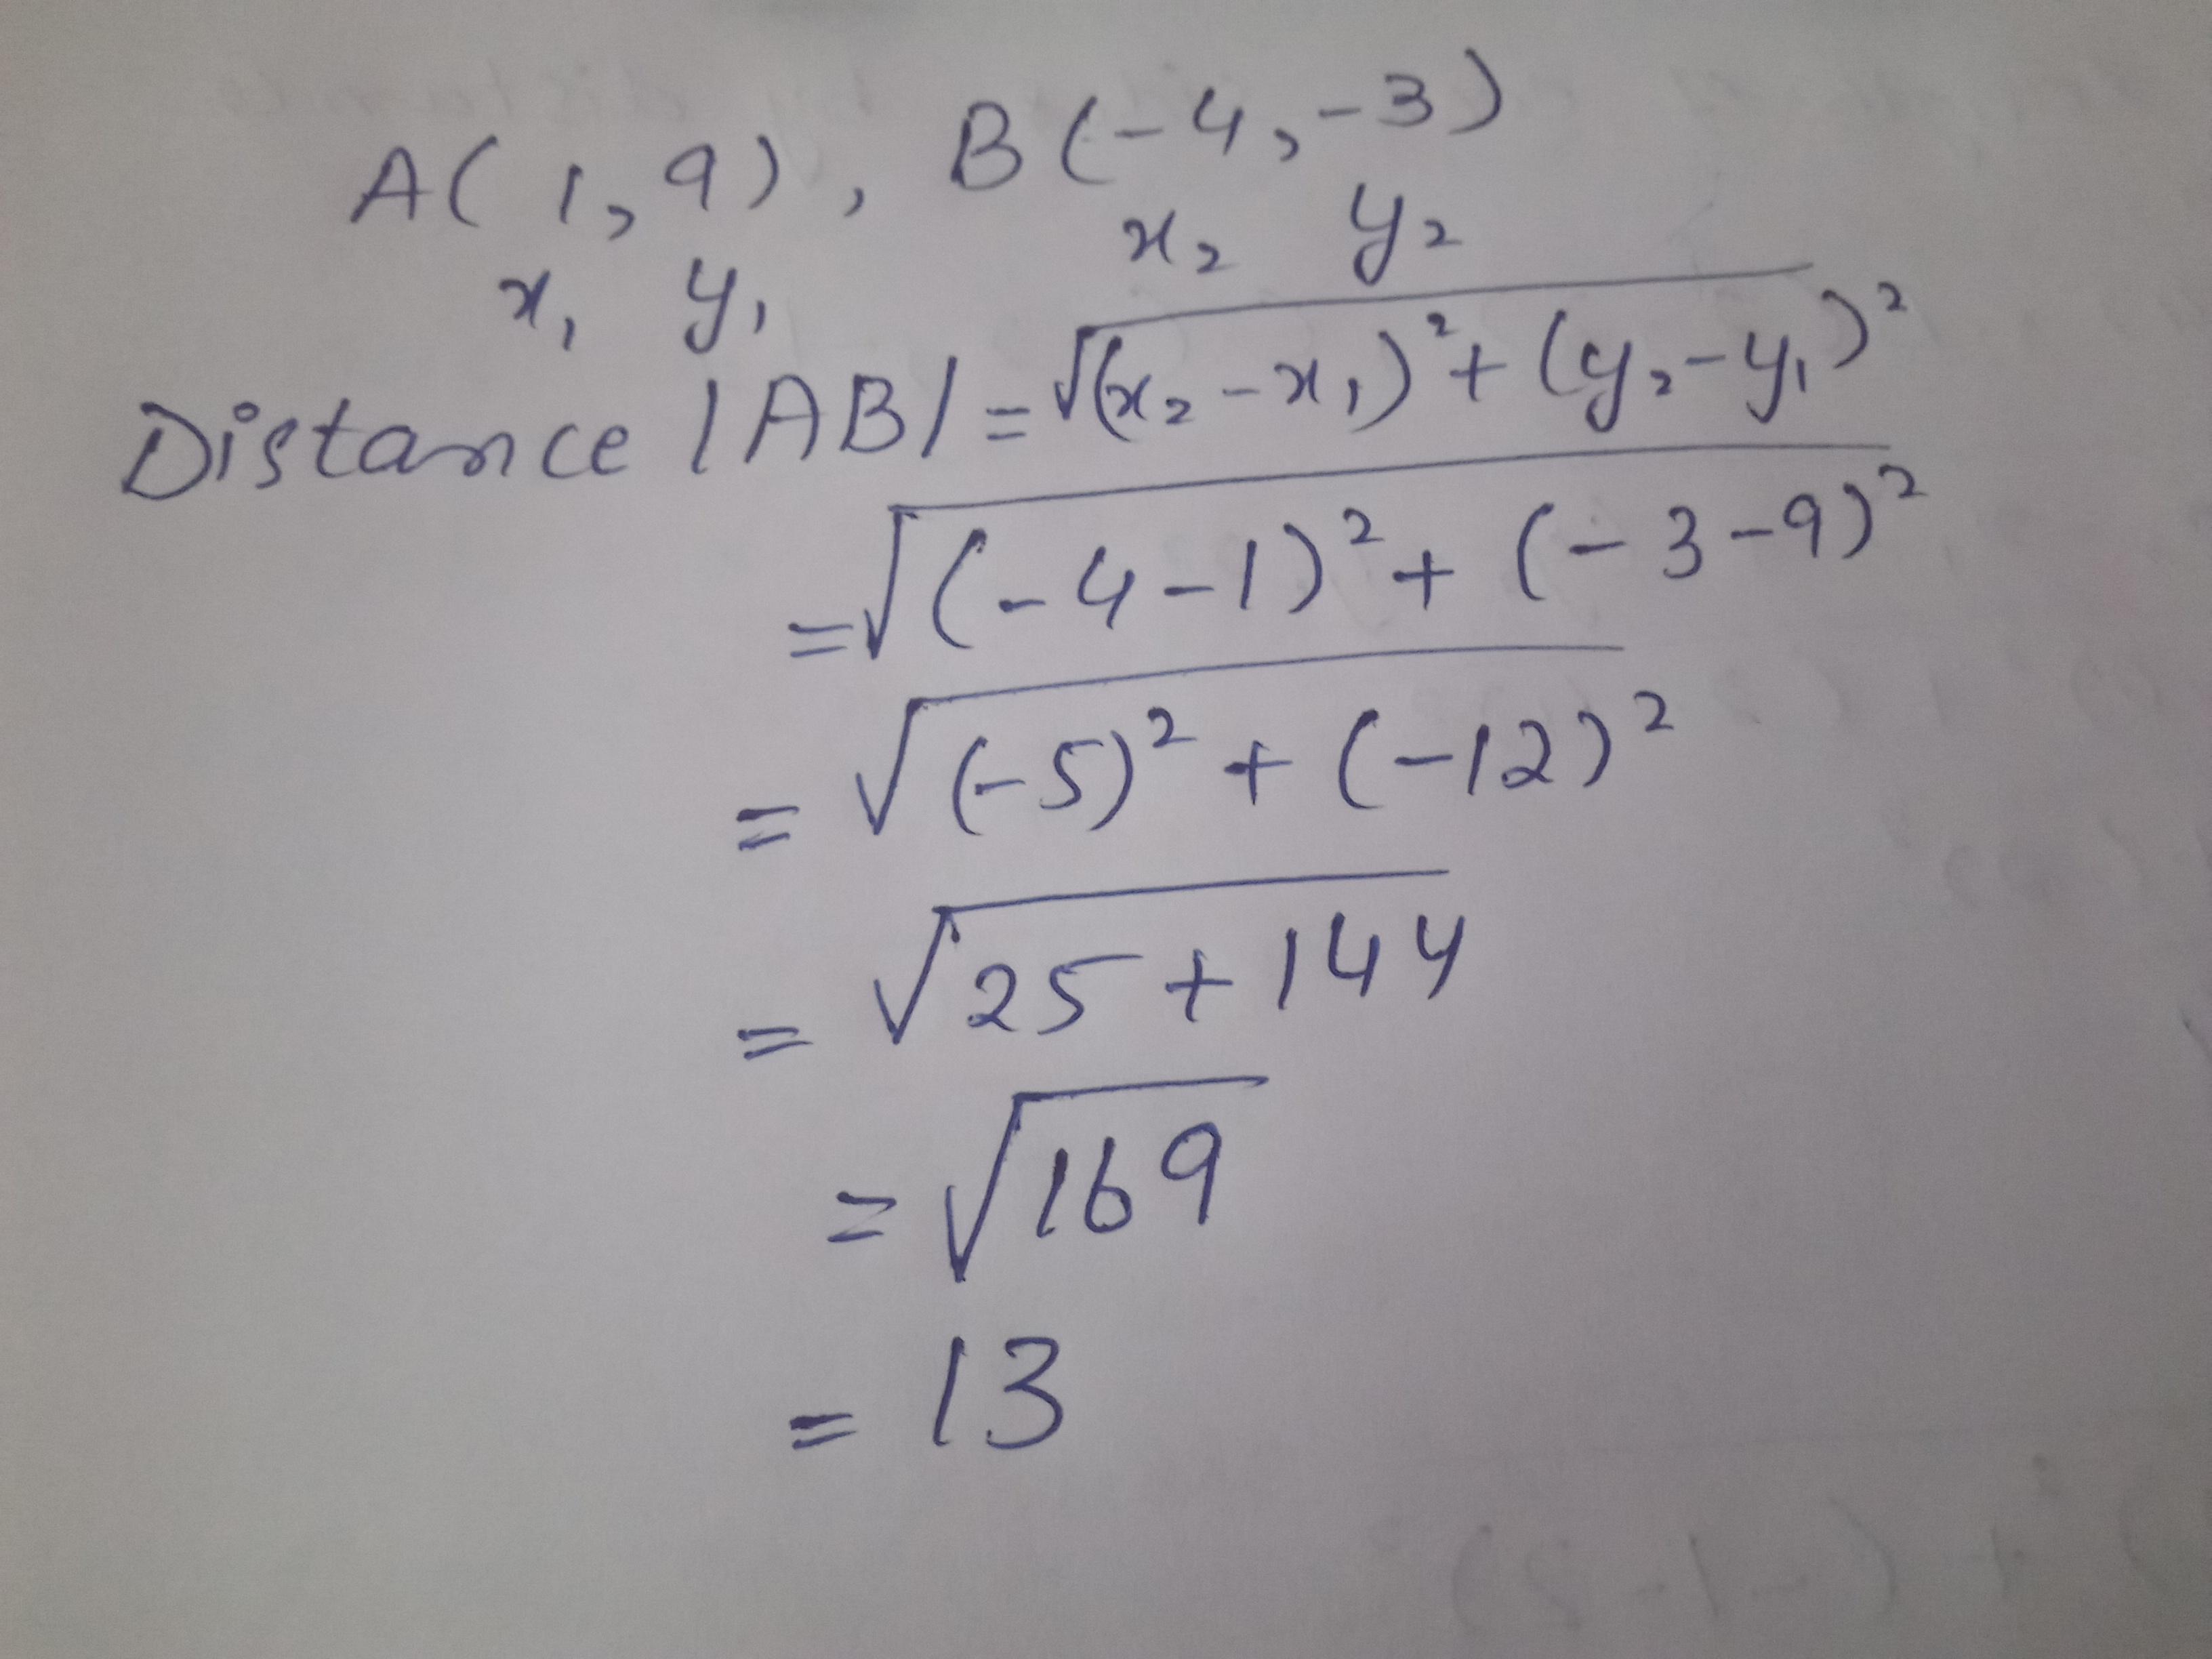 A(1,9), B(-4,-3)
x₁ y₁ x₂ y₂
Distance |AB| = √(x₂-x₁)²+(y₂-y₁)²
=√(-4-1)²+(-3-9)²
= √(-5)²+(-12)²
= √25+144
= √169
= 13